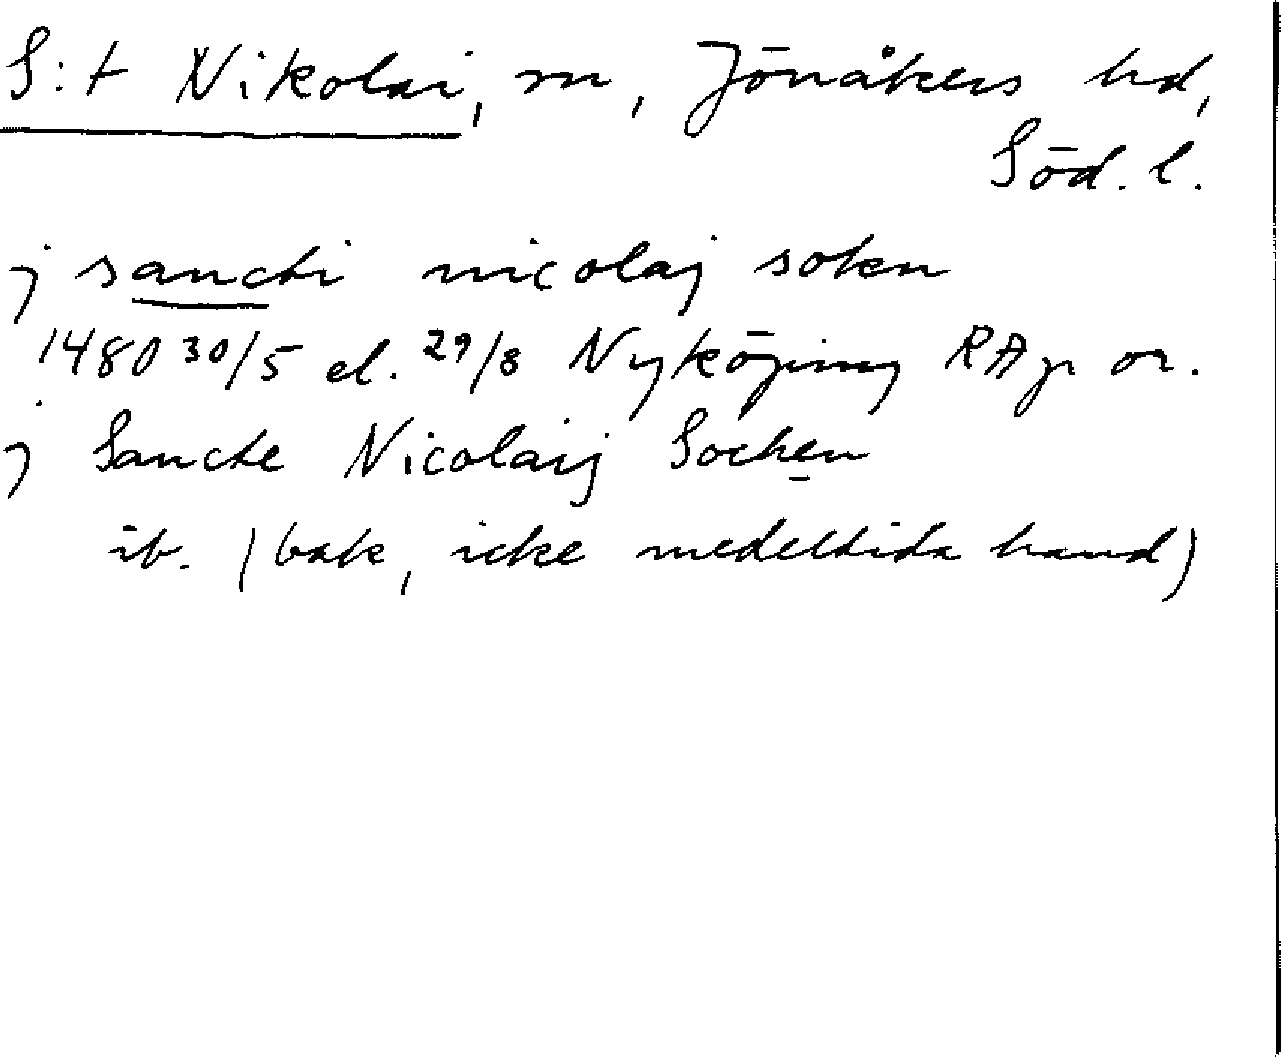 S:t Nikolai, sn, Jönåkers hd,
Söd. l.
j sancti nicolaj sokn
1480 30/5 el. 29/8 Nyköping RAp or.
j Sancte Nicolaij Sochen
ib. (bak, icke medeltida hand)